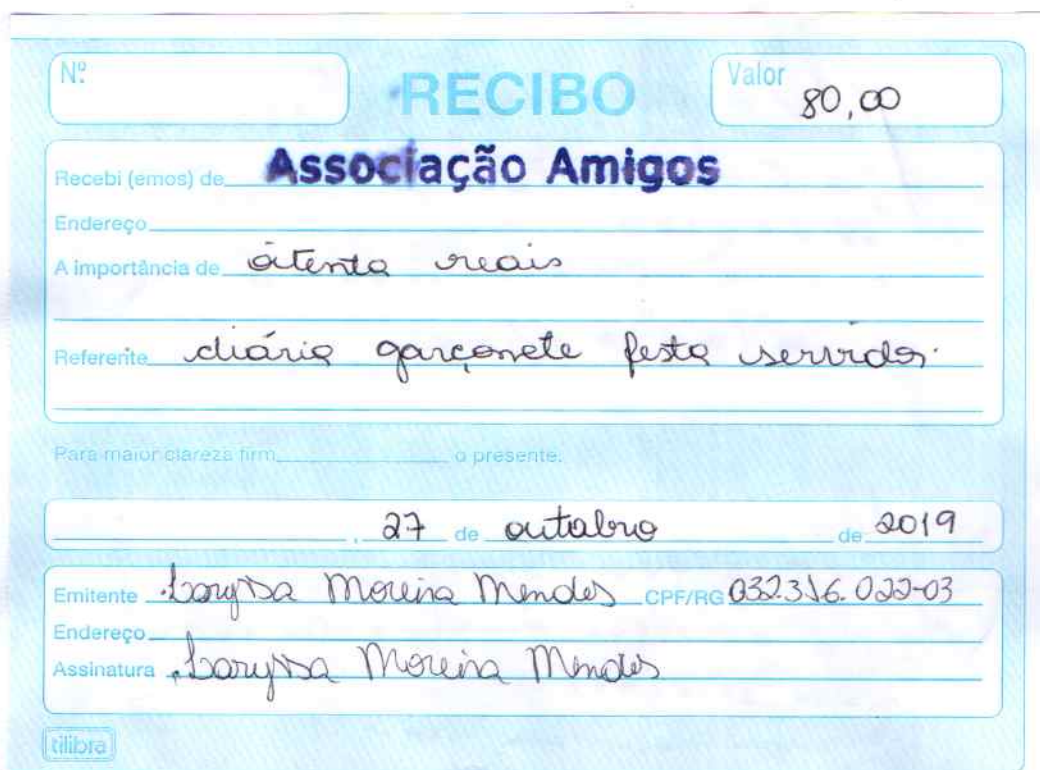 Nº RECIBO Valor 80,00
Recebi (emos) de Associação Amigos
Endereço
A importância de oitenta reais
Referente diária garçonete festa servidor.
Para maior clareza firm o presente.
, 27 de outubro de 2019
Emitente Laryssa Moreira Mendes CPF/RG 032.316.022-03
Endereço
Assinatura Laryssa Moreira Mendes
tilibra